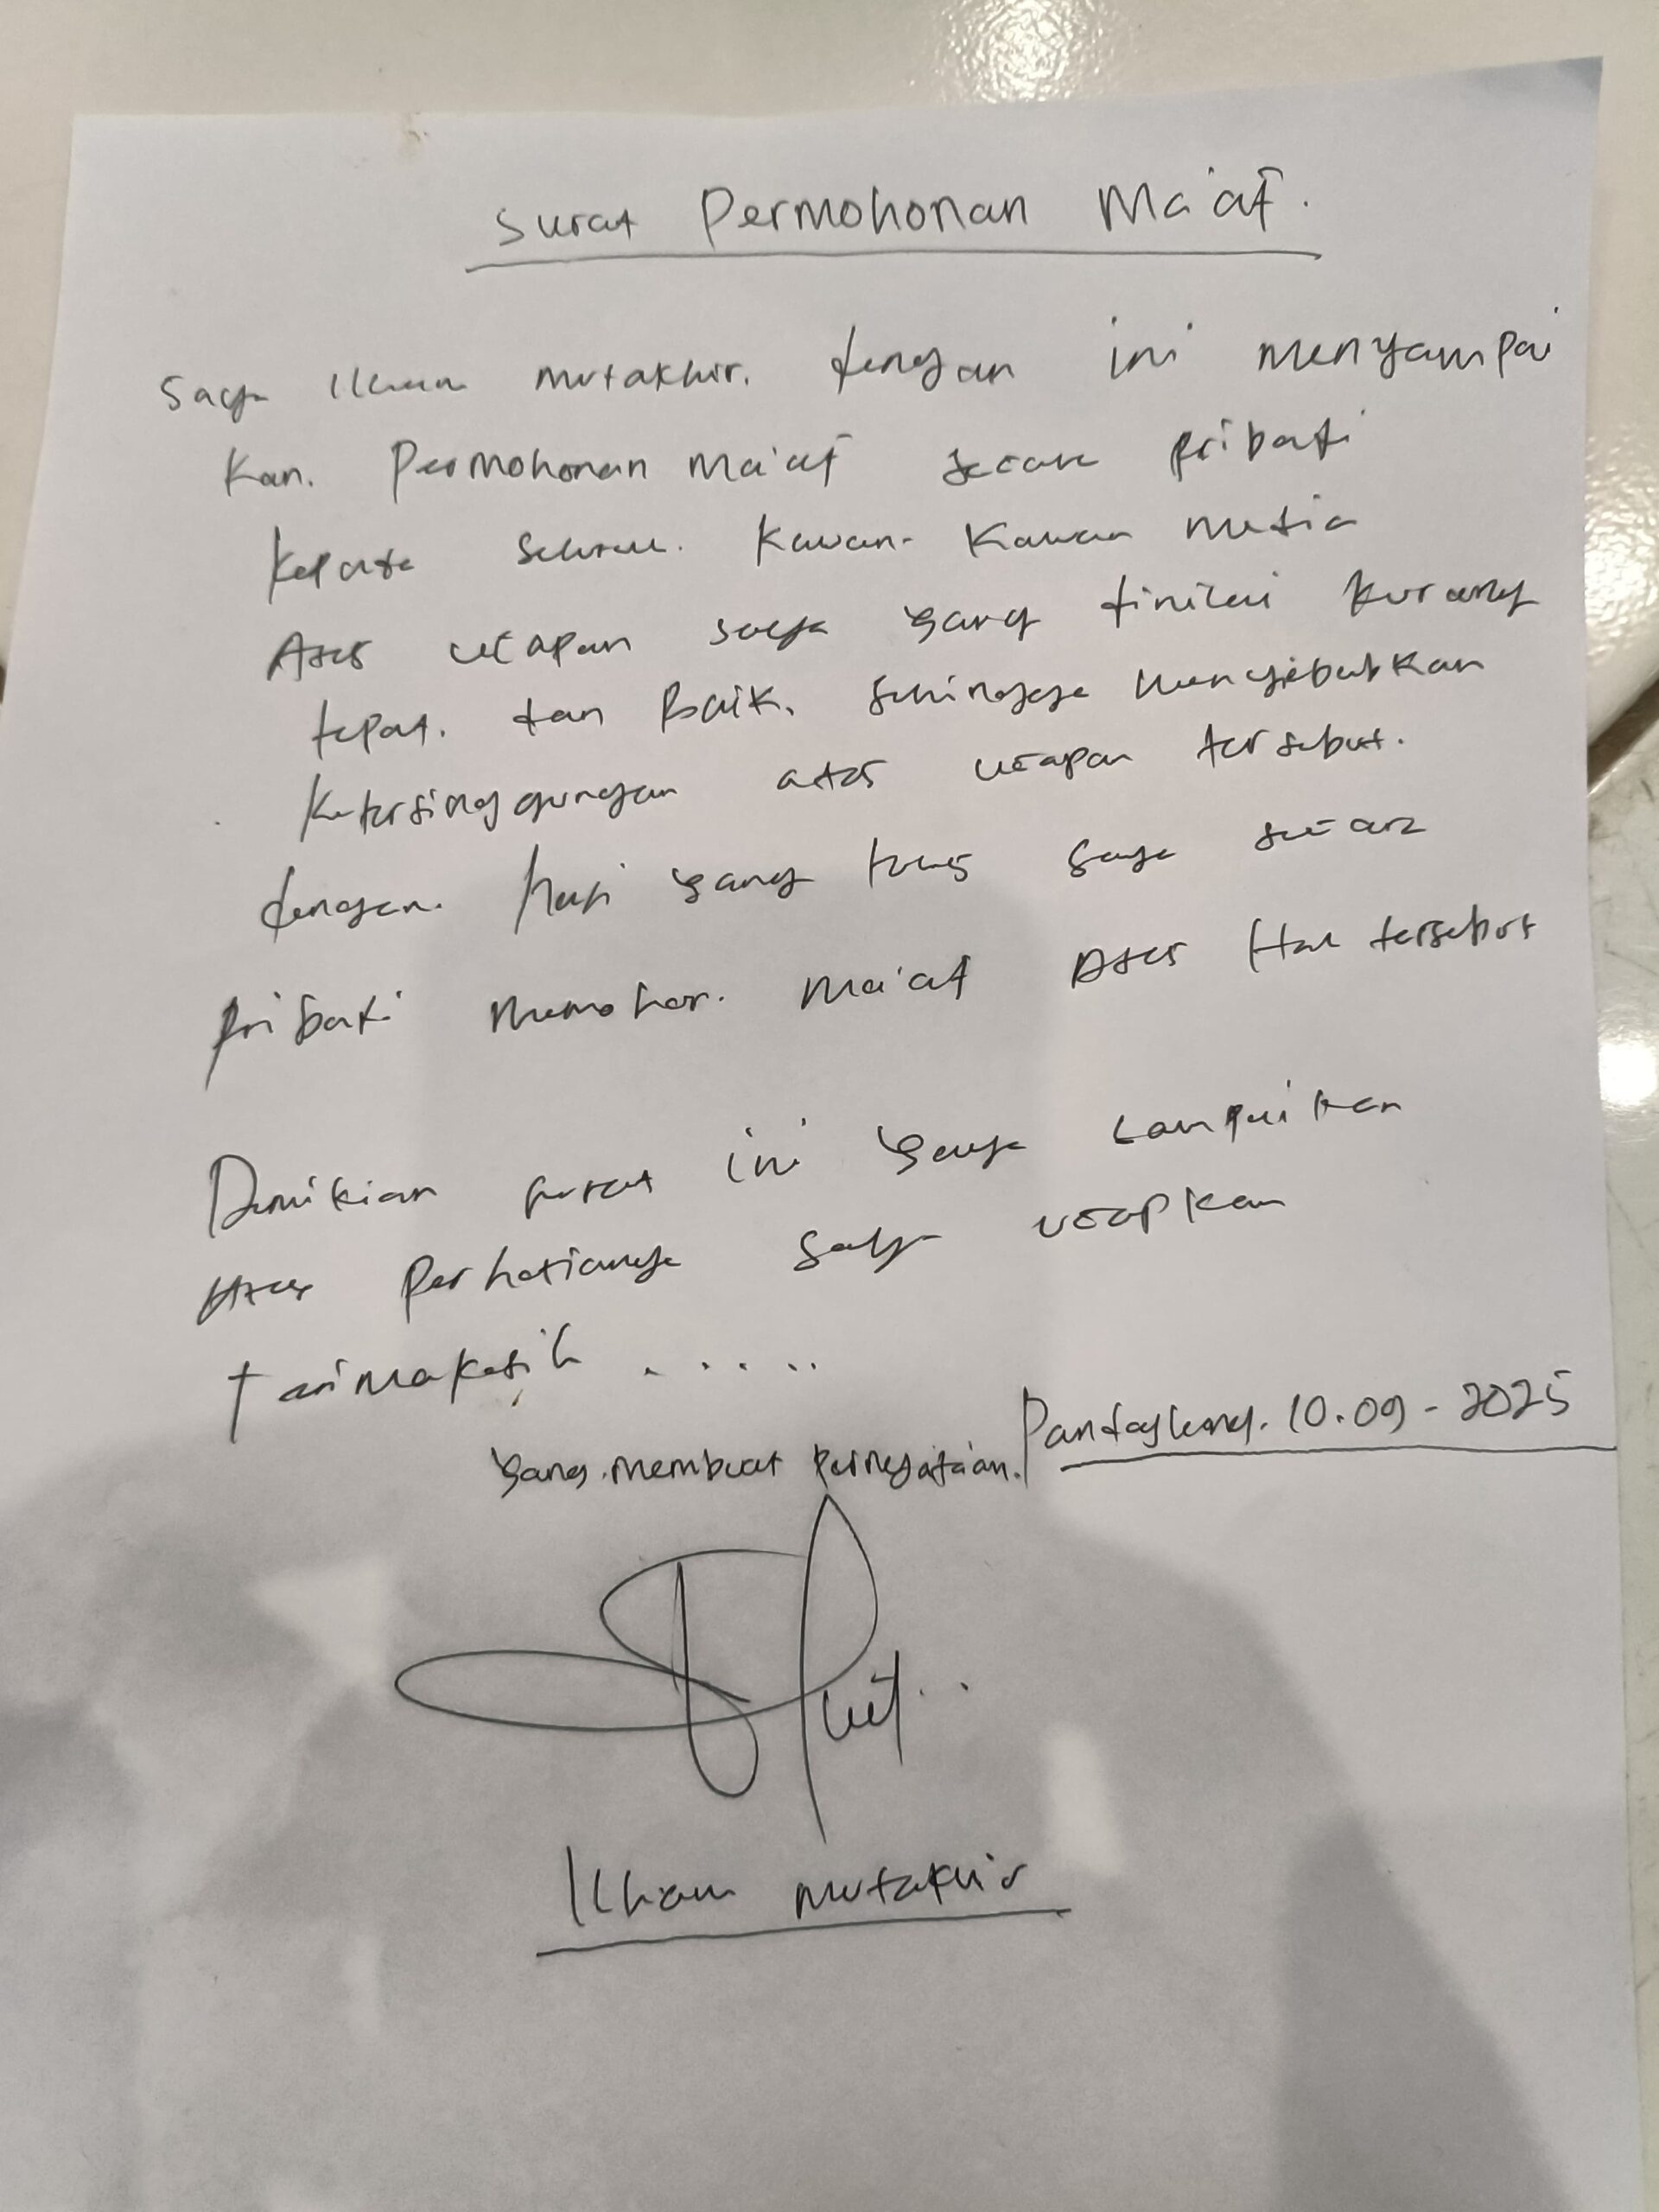 Surat Permohonan Ma'af.
Saya Ilham mutakhir. dengan ini menyampai
Kan. Permohonan Ma'af secara pribadi
Kepada seluruh. Kawan-Kawan media
Atas ucapan saya yang dinilai kurang
tepat. dan Baik. sehingga menyebabkan
Ketersinggungan atas ucapan tersebut.
dengan. hati yang tulus saya secara
pribadi memohon. Ma'af Atas Hal tersebut
Demikian surat ini saya sampaikan
Atas perhatiannya saya ucapkan
terimakasih . . . . .
Pandeglang. 10.09-2025
yang membuat pernyataan.
Ilham mutakhir